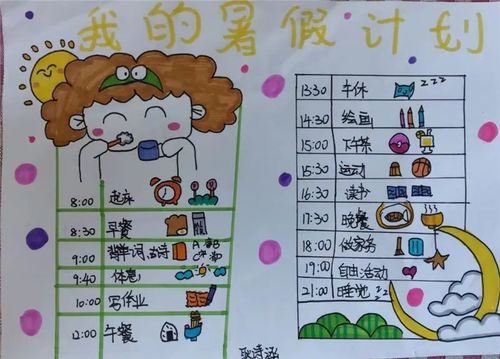 我的暑假计划
8:00 起床
8:30 早餐
9:00 背单词、古诗
9:40 休息
10:00 写作业
12:00 午餐
13:30 午休 zzz
14:30 绘画
15:00 下午茶
15:30 运动
16:30 读书
17:30 晚餐
18:00 做家务
19:00 自由活动
21:00 睡觉 zz
耿诗涵